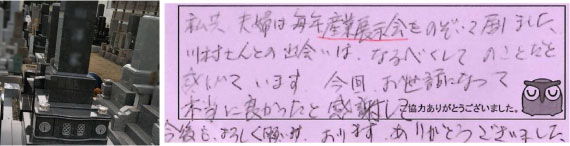 私共夫婦は毎年産業展示会をのぞいて居ました。
川村さんとの出会いは、なるべくしてのことだと
感じています。今回お世話になって
本当に良かったと感謝して
ご協力ありがとうございました。
おります。ありがとうございました
今後も、よろしく願います。